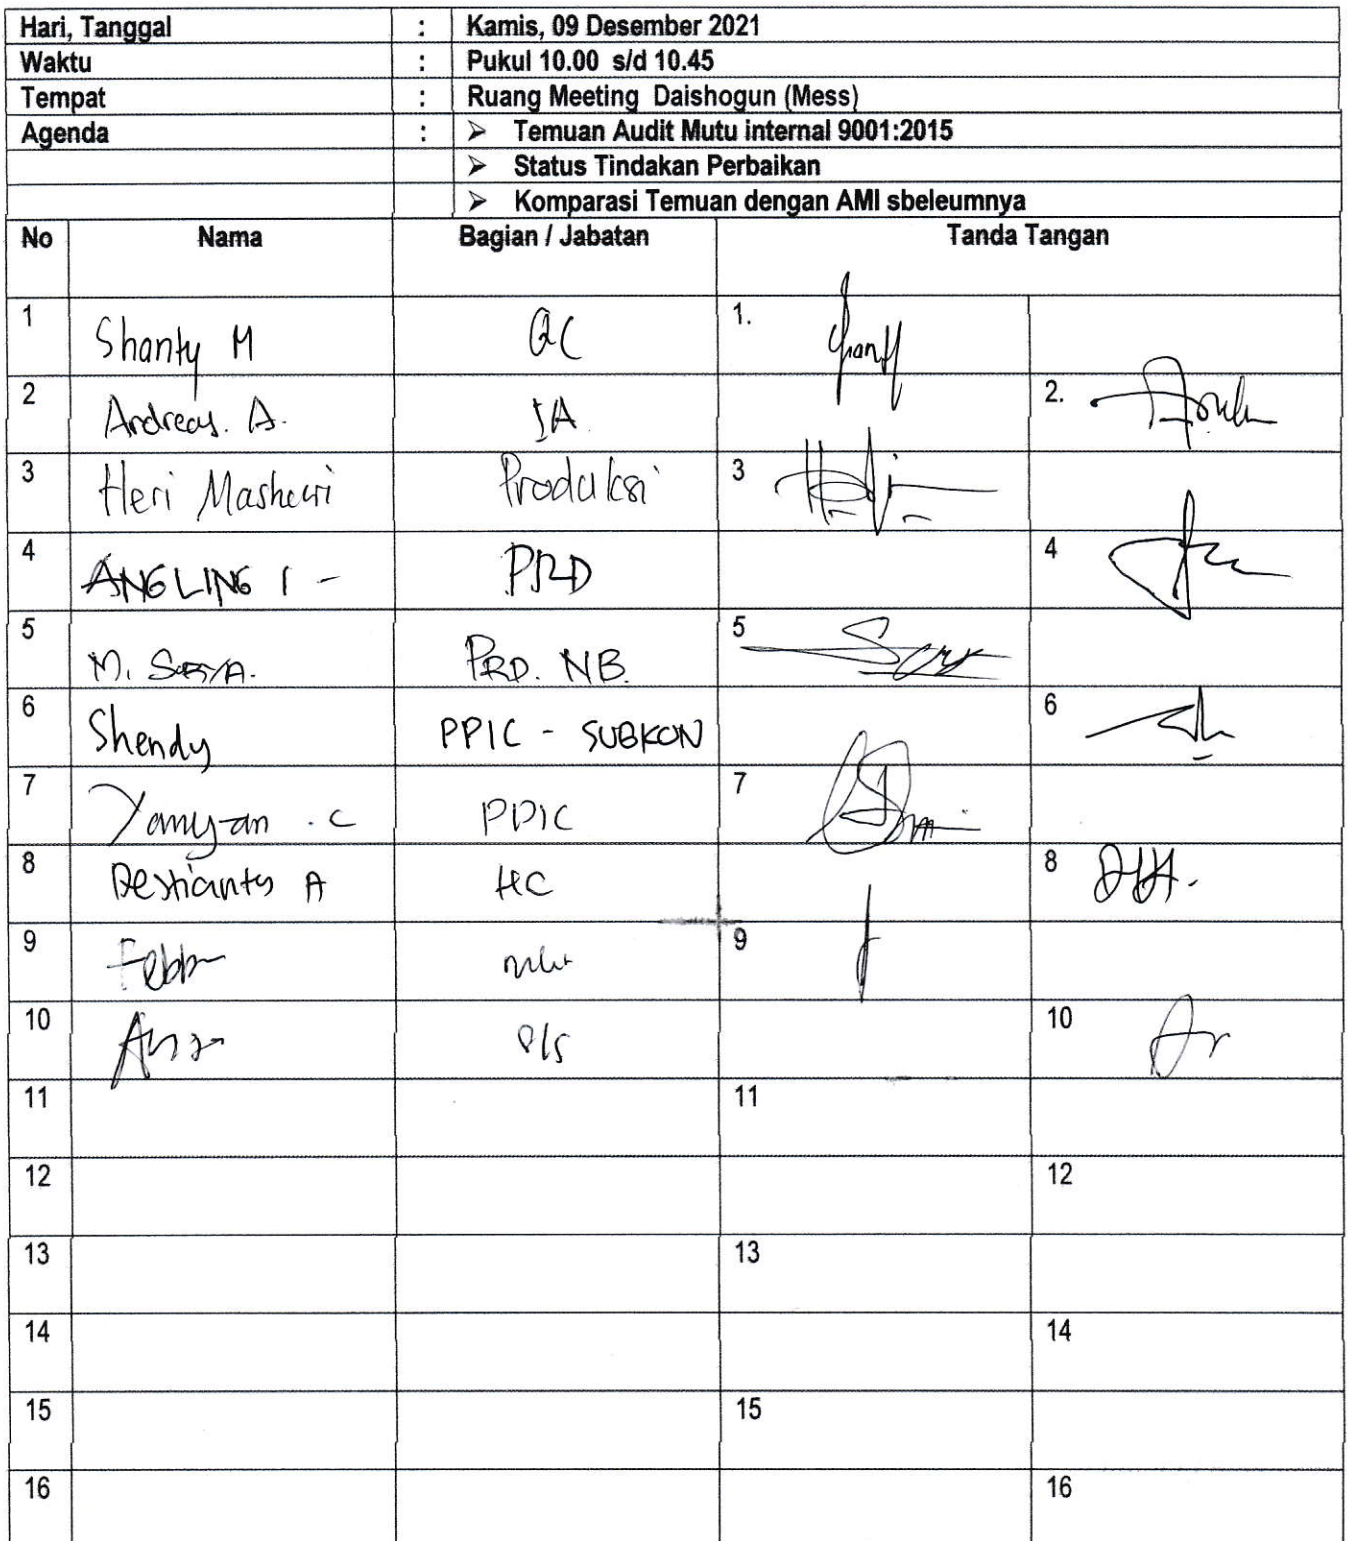 Hari, Tanggal : Kamis, 09 Desember 2021
Waktu : Pukul 10.00 s/d 10.45
Tempat : Ruang Meeting Daishogun (Mess)
Agenda : ➢ Temuan Audit Mutu internal 9001:2015
➢ Status Tindakan Perbaikan
➢ Komparasi Temuan dengan AMI sbeleumnya
No Nama Bagian / Jabatan Tanda Tangan
1 Shanty M QC 1.
2 Andreas. A. IA 2.
3 Heri Mashuri Produksi 3
4 ANGLING I - PRD 4
5 M. PRD. NB. 5
6 Shendy PPIC - SUBKON 6
7 Yamyan . C PPIC 7
8 Destianty A HC 8
9 9
10 10
11 11
12 12
13 13
14 14
15 15
16 16